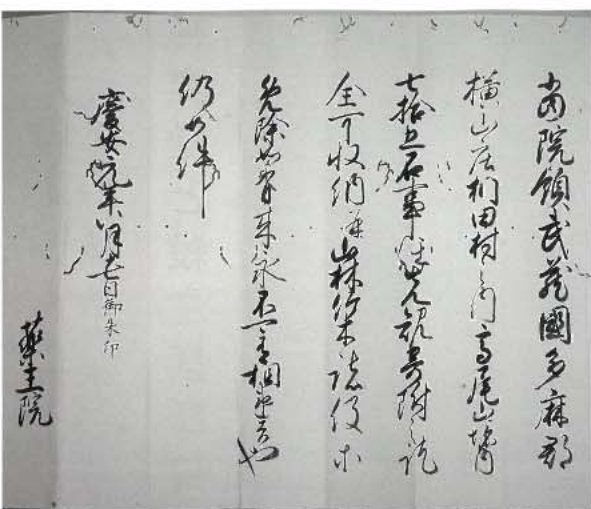 當院領武蔵國多麻郡
横山庄椚田村之内高尾山境内
七拾五石事任先規寄附之訖
全可収納并山林竹木諸役等
免除如有来永不可有相違者也
仍如件
慶安元年八月十七日御朱印
薬王院